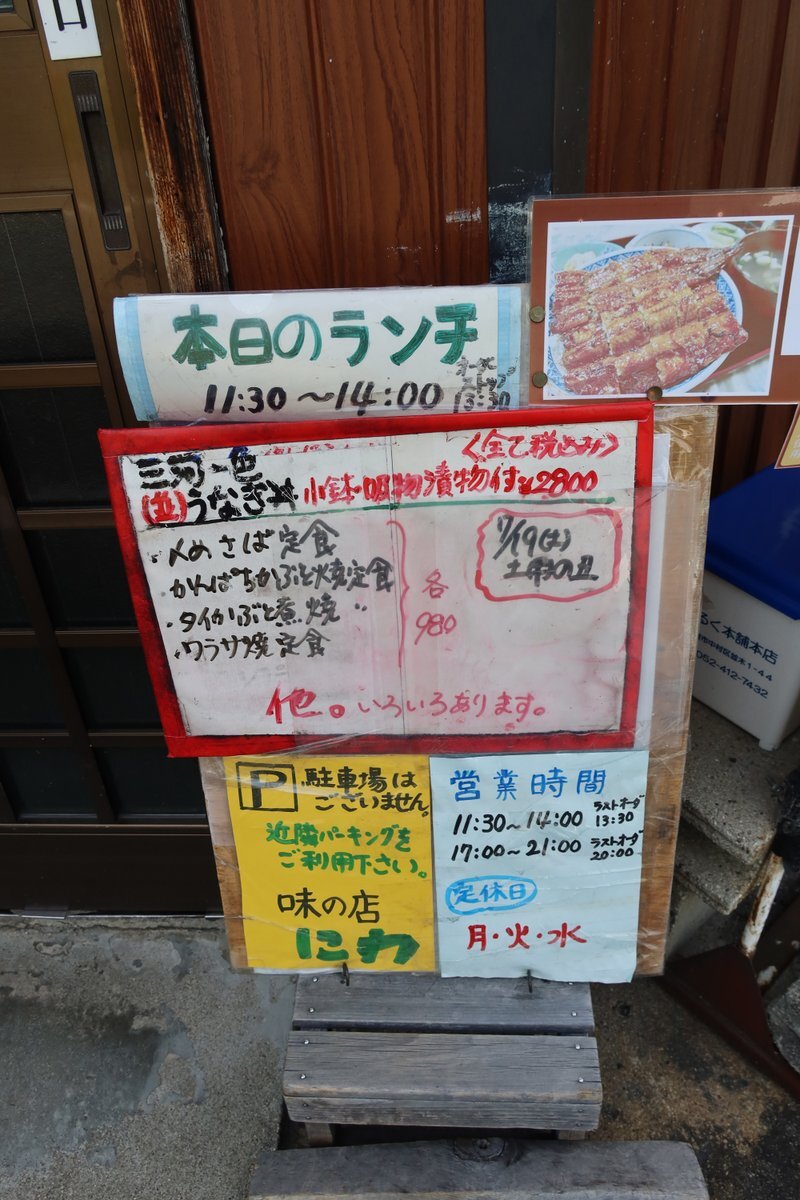 本日のランチ
11:30〜14:00
オーダー
ストップ
13:30
<全て税込み>
三河一色
(並)うなぎ丼 小鉢・吸物漬物付¥2800
・〆めさば定食
かんぱちかぶと焼定食
・タイかぶと煮・焼 〃
・ワラサ焼定食
各
980
7/19(土)
土用の丑
他。いろいろあります。
P 駐車場は
ございません。
近隣パーキングを
ご利用下さい。
味の店
にわ
営業時間
11:30〜14:00 ラストオーダ 13:30
17:00〜21:00 ラストオーダ 20:00
定休日
月・火・水
るく本舗本店
052-412-7432